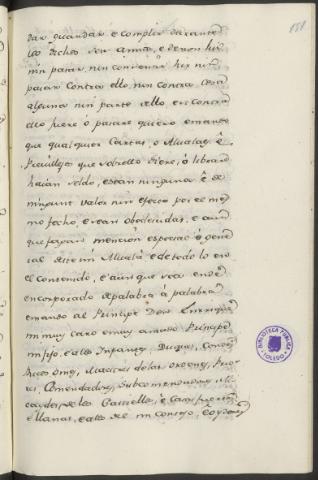 151
dar guardar e complir durante
los dichos
nin pasar, nin
pasar contra ello nin contra cosa
alguna nin parte dello e si contra
ello fuere ó pasare quiero e mando
que qualquier Cartas, o Alvalaes é
Previllejos que sobrello diere, ó librare
haian seido, e sean ningunos é de
ningunt valor nin efecto por el mes
mo fecho, e sean obedecidas, e aun
que fagan mencion especial ó gene
ral deste mi Alvalá e de todo lo en
el contenido, e aunque sea en
encorporado de palabra á palabra
e mando al Principe Don Enrique
mi muy caro e muy amado Principe
mi fijo, e a los Infantes, Duques, Condes
Ricos Omes, Maestres de las Ordenes, Prio
res, Comendadores, Subcomendadores, Al
caydes de los Castillos, e Casas fuertes
e llanas, e a los del mi Consejo,
BIBLIOTECA PUBLICA
TOLEDO